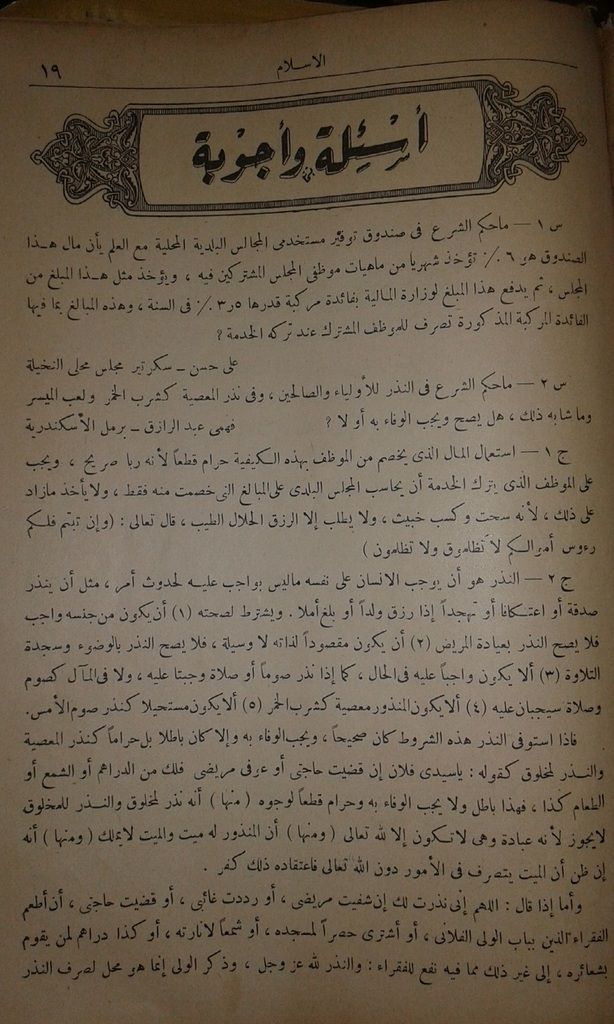 الاسلام
١٩
أسئلة وأجوبة
س ١ — ماحكم الشرع فى صندوق توفير مستخدمى المجالس البلدية المحلية مع العلم بأن مال هـذا
الصندوق هو ٦ ٪ تؤخذ شهريا من ماهيات موظفى المجلس المشتركين فيه ، ويؤخذ مثل هـذا المبلغ من
المجلس ، ثم يدفع هذا المبلغ لوزارة المالية بفائدة مركبة قدرها ٣٫٥ ٪ فى السنة ، وهذه المبالغ بما فيها
الفائدة المركبة المذكورة تصرف للموظف المشترك عند تركه الخدمة ؟
على حسن ــ سكرتير مجلس محلى النخيلة
س ٢ — ماحكم الشرع فى النذر للأولياء والصالحين ، وفى نذر المعصية كشرب الخمر ولعب الميسر
وماشابه ذلك ، هل يصح ويجب الوفاء به أو لا ؟ فهمى عبد الرازق ــ برمل الأسكندرية
ج ١ — استعمال المال الذى يخصم من الموظف بهذه الكيفية حرام قطعاً لأنه ربا صريح ، ويجب
على الموظف الذى يترك الخدمة أن يحاسب المجلس البلدى على المبالغ التى خصمت منه فقط ، ولا يأخذ مازاد
على ذلك ، لأنه سحت وكسب خبيث ، ولا يطلب إلا الرزق الحلال الطيب ، قال تعالى : (وإن تبتم فلكم
رءوس أموالكم لا تَظلمون ولا تُظلمون )
ج ٢ — النذر هو أن يوجب الانسان على نفسه ماليس بواجب عليه لحدوث أمر ، مثل أن ينذر
صدقة أو اعتكافا أو تهجداً إذا رزق ولداً أو بلغ أملا . ويشترط لصحته (١) أن يكون من جنسه واجب
فلا يصح النذر بعيادة المريض (٢) أن يكون مقصوداً لذاته لا وسيلة ، فلا يصح النذر بالوضوء وسجدة
التلاوة (٣) ألا يكون واجباً عليه فى الحال ، كما إذا نذر صوماً أو صلاة وجبتا عليه ، ولا فى المآل كصوم
وصلاة سيجبان عليه (٤) ألا يكون المنذور معصية كشرب الخمر (٥) ألا يكون مستحيلا كنذر صوم الأمس.
فاذا استوفى النذر هذه الشروط كان صحيحاً ، ويجب الوفاء به وإلا كان باطلا بل حراماً كنذر المعصية
والنــذر لمخلوق كقوله : ياسيدى فلان إن قضيت حاجتى أو عوفى مريضى فلك من الدراهم أو الشمع أو
الطعام كذا ، فهذا باطل ولا يجب الوفاء به وحرام قطعاً لوجوه ( منها ) أنه نذر لمخلوق والنــذر للمخلوق
لايجوز لأنه عبادة وهى لا تكون إلا لله تعالى ( ومنها ) أن المنذور له ميت والميت لايملك ( ومنها ) أنه
إن ظن أن الميت يتصرف فى الأمور دون الله تعالى فاعتقاده ذلك كفر .
وأما إذا قال : اللهم إنى نذرت لك إن شفيت مريضى ، أو رددت غائبى ، أو قضيت حاجتى ، أن أطعم
الفقراء الذين بباب الولى الفلانى ، أو أشترى حصراً لمسجده ، أو شمعاً لانارته ، أو كذا دراهم لمن يقوم
بشعائره ، إلى غير ذلك مما فيه نفع للفقراء : والنذر لله عز وجل ، وذكر الولى إنما هو محل لصرف النذر